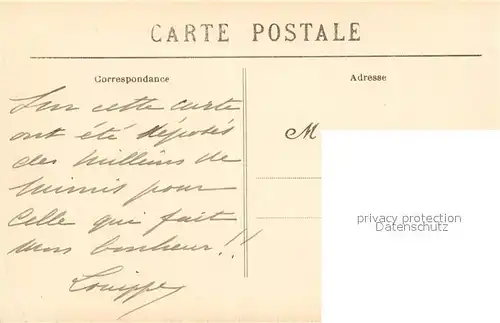 CARTE POSTALE
Correspondance
Adresse
Sur cette carte
ont été déposés
des milliers de
mimis pour
celle qui fait
mon bonheur!!
M
privacy protection
Datenschutz